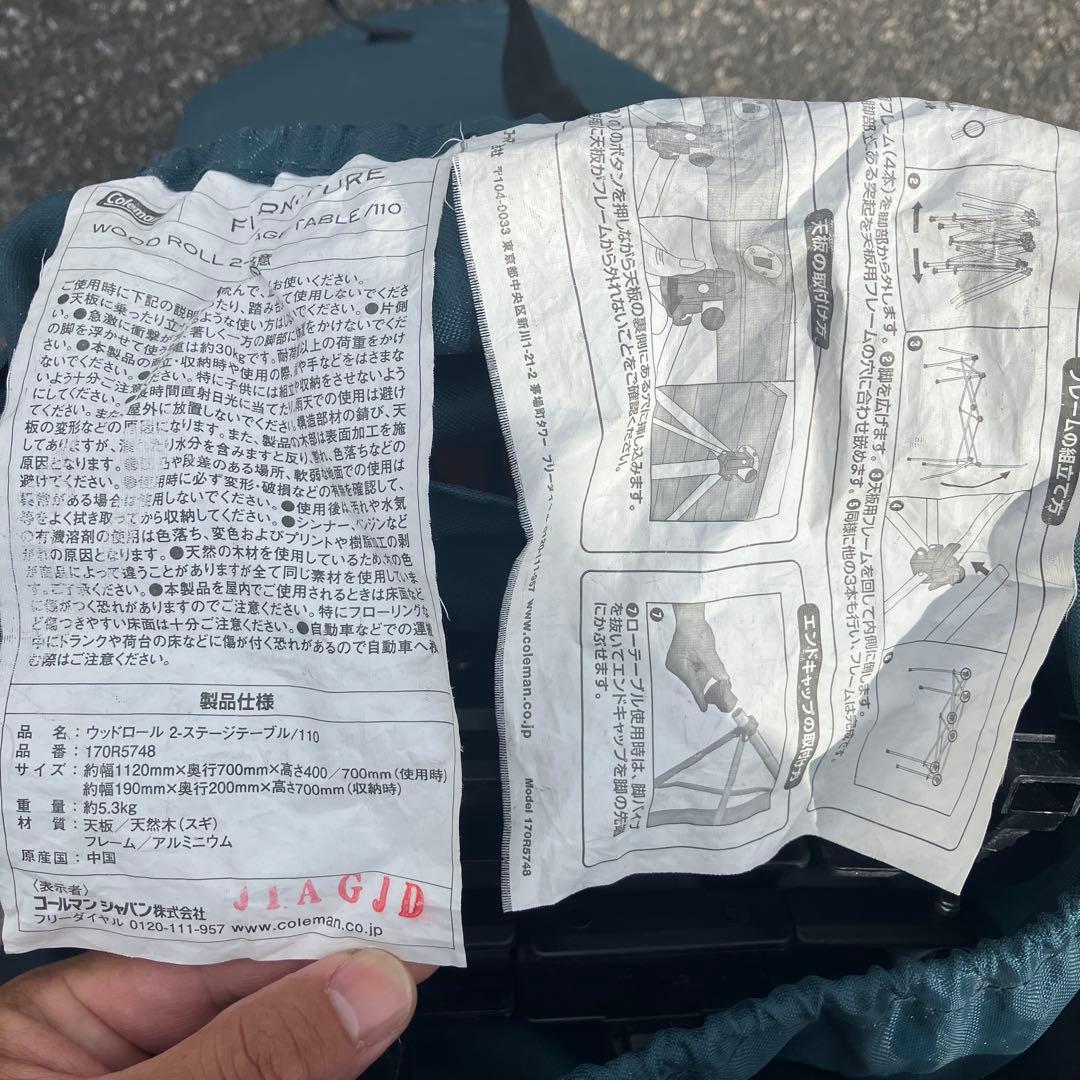 Coleman
FURNITURE
WOOD ROLL 2-
TABLE/110
ご使用時に下記の説明
お使いください。
●天板に乗ったり立
たり、踏み
して使用しないでくださ
い。●急激に衝撃が
ような使い方は
ください。●片側
の脚を浮かせて使
著しく一方の脚部に
をかけないでくだ
さい。●本製品の
は約30kgです。耐荷
以上の荷重をかけ
ないでください。
・収納時や使用の際、
や手などをはさまな
いよう十分ご注意ください。特に子供には組立や収納をさせないよう
にしてください。
時間直射日光に当てたり、雨天での使用は避け
てください。また、屋外に放置しないでください。構造部材の錆び、天
板の変形などの原因になります。また、製品の木部は表面加工を施
してありますが、
水分を含みますと反り、割れ、色落ちなどの
原因となります。
や段差のある場所、軟弱な地面での使用は
避けてください。
使用時に必ず変形・破損などの有無を確認して、
異常がある場合は使用しないでください。●使用後は汚れや水気
等をよく拭き取ってから収納してください。●シンナー、ベンジンなど
の有機溶剤の使用は色落ち、変色およびプリントや樹脂加工の剥
がれの原因となります。●天然の木材を使用しているため木の色
が商品によって違うことがありますが全て同じ素材を使用していま
す。ご了承ください。●本製品を屋内でご使用されるときは床面など
に傷がつく恐れがありますのでご注意ください。特にフローリングな
ど傷つきやすい床面は十分ご注意ください。●自動車などでの運搬
中にトランクや荷台の床などに傷が付く恐れがあるので自動車へ積
む際はご注意ください。
製品仕様
品 名：ウッドロール 2-ステージテーブル/110
品 番：170R5748
サイズ：約幅1120mm×奥行700mm×高さ400／700mm(使用時)
約幅190mm×奥行200mm×高さ700mm(収納時)
重 量：約5.3kg
材 質：天板／天然木(スギ)
フレーム／アルミニウム
原産国：中国
〈表示者〉
コールマン ジャパン株式会社
フリーダイヤル 0120-111-957 www.coleman.co.jp
J1AGJD
フレームの組立て方
❷
❸
❹
❺
フレーム(4本)を脚部から外します。❷脚を広げます。❸天板用フレームを回して内側に倒します。
脚部にある突起を天板用フレームの穴に合わせ嵌めます。❺同様に他の3本も行い、フレームは完成です。
天板の取付け方
のボタンを押しながら天板の裏側にある穴に押し込みます。
に天板がフレームから外れないことをご確認ください。
エンドキャップの取付け方
❼
❼ローテーブル使用時は、脚パイプ
を抜いてエンドキャップを脚の先端
にかぶせます。
〒104-0033 東京都中央区新川1-21-2 茅場町タワー フリーダイヤル 0120-111-957 www.coleman.co.jp
Model 170R5748